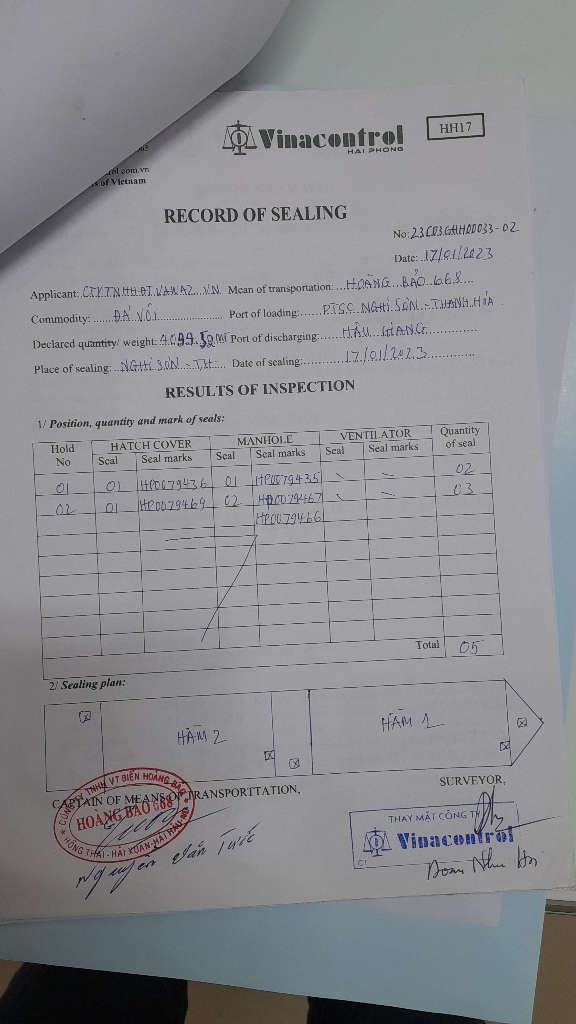 Vinacontrol
HAI PHONG
HH17
of Vietnam
RECORD OF SEALING
No: 23C03GHH00033-02
Date: 17/01/2023
Applicant: CTY TNHH ĐT VAWAZ VN Mean of transportation: HOÀNG BẢO 668
Commodity: ĐÁ VÔI Port of loading: PTSC NGHI SƠN - THANH HÓA
Declared quantity/ weight: 4.099.50 MT Port of discharging: HẬU GIANG
Place of sealing: NGHI SƠN - TH Date of sealing: 17/01/2023
RESULTS OF INSPECTION
1/ Position, quantity and mark of seals:
Hold No HATCH COVER MANHOLE VENTILATOR Quantity of seal
Seal Seal marks Seal Seal marks Seal Seal marks
01 01 HP0079436 01 HP0079435 02
02 01 HP0079469 02 HP0079467 03
HP0079466
Total 05
2/ Sealing plan:
HẦM 2 HẦM 1
CAPTAIN OF MEANS OF TRANSPORTTATION, SURVEYOR,
CÔNG TY TNHH VT BIỂN HOÀNG BẢO
HOÀNG BẢO 668
HỒNG THÁI - HẢI XUÂN - HẢI HẬU
THAY MẶT CÔNG TY
Vinacontrol
Nguyễn Văn Tước
Doan Nhu